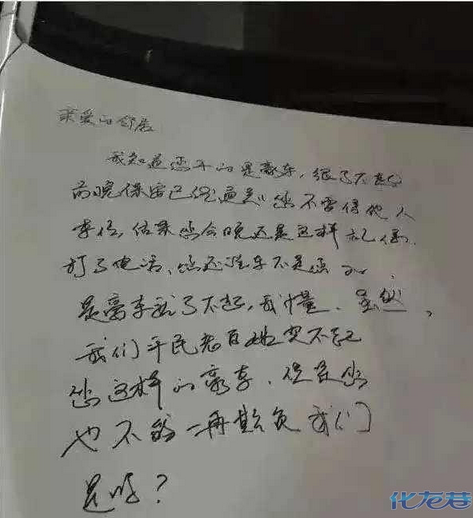 亲爱的邻居
我知道您开的是豪车，很了不起
前晚保安已经通知您不要停他人
车位，结果您今晚还是这样
打了电话，您还说车不是您
是豪车就了不起，虽然，
我们平民老百姓买不起
您这样的豪车，但是您
也不能一再欺负我们
是吗？
化龙巷